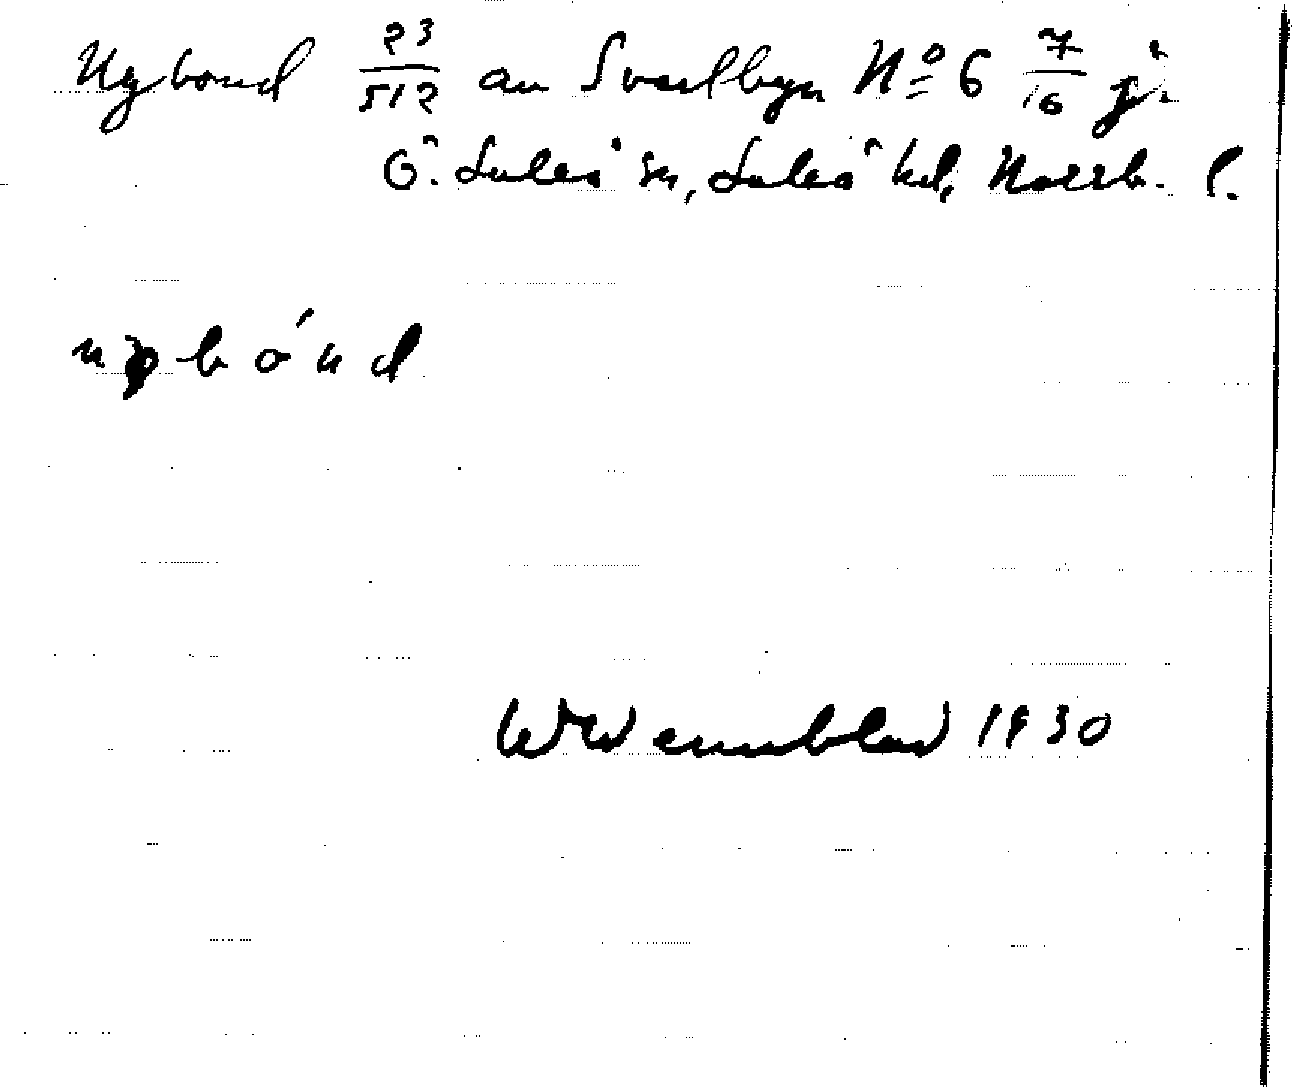 Nybond 23/512 av Svartbyn Nº 6 7/16 j.
Ö. Luleå sn, Luleå hd, Norrb. l.
nybónd
W Wennblad 1930